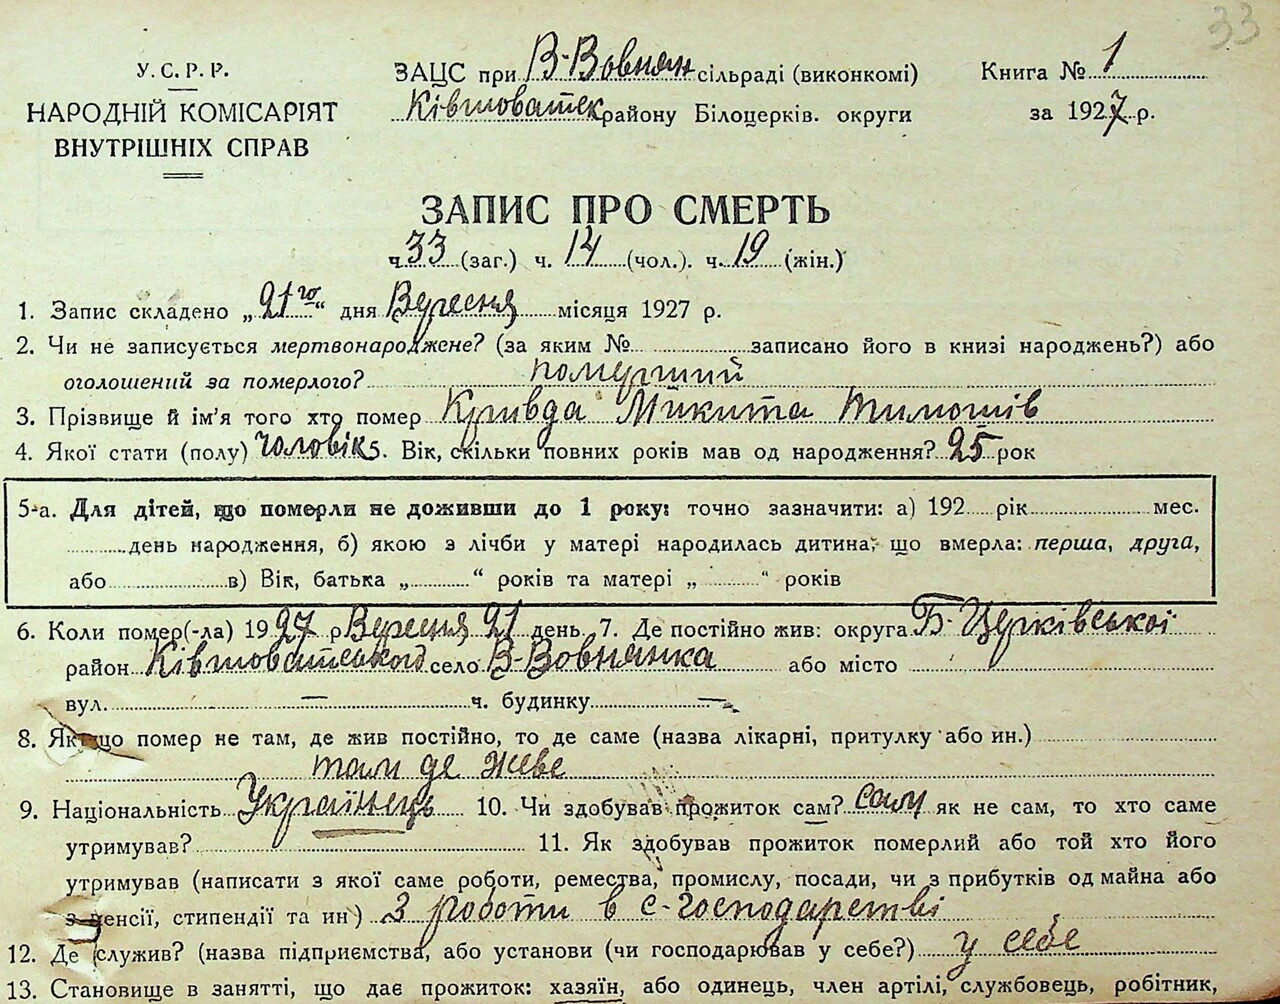 33
У.С.Р.Р. ЗАЦС при В-Вовнян сільраді (виконкомі) Книга № 1
НАРОДНІЙ КОМІСАРІЯТ Ківшоватськ району Білоцерків. округи за 1927 р.
ВНУТРІШНІХ СПРАВ
ЗАПИС ПРО СМЕРТЬ
ч. 33 (заг.) ч. 14 (чол.). ч. 19 (жін.)
1. Запис складено „21го“ дня Вересня місяця 1927 р.
2. Чи не записується мертвонароджене? (за яким № записано його в книзі народжень?) або
оголошений за померлого? померший
3. Прізвище й ім'я того хто помер Кривда Микита Тимошів
4. Якої стати (полу) чоловік 5. Вік, скільки повних років мав од народження? 25 рок
5-а. Для дітей, що померли не доживши до 1 року: точно зазначити: а) 192 рік мес.
день народження, б) якою з лічби у матері народилась дитина, що вмерла: перша, друга,
або в) Вік, батька „ “ років та матері „ “ років
6. Коли помер(-ла) 1927 р Вересня 21 день 7. Де постійно жив: округа Б-Церківської
район Ківшоватського село В-Вовнянка або місто
вул. — ч. будинку —
8. Якщо помер не там, де жив постійно, то де саме (назва лікарні, притулку або ин.)
там де живе
9. Національність Українець 10. Чи здобував прожиток сам? сам як не сам, то хто саме
утримував? 11. Як здобував прожиток померлий або той хто його
утримував (написати з якої саме роботи, ремества, промислу, посади, чи з прибутків од майна або
з пенсії, стипендії та ин) З роботи в с-господарстві
12. Де служив? (назва підприємства, або установи (чи господарював у себе?) у себе
13. Становище в занятті, що дає прожиток: хазяїн, або одинець, член артілі, службовець, робітник,